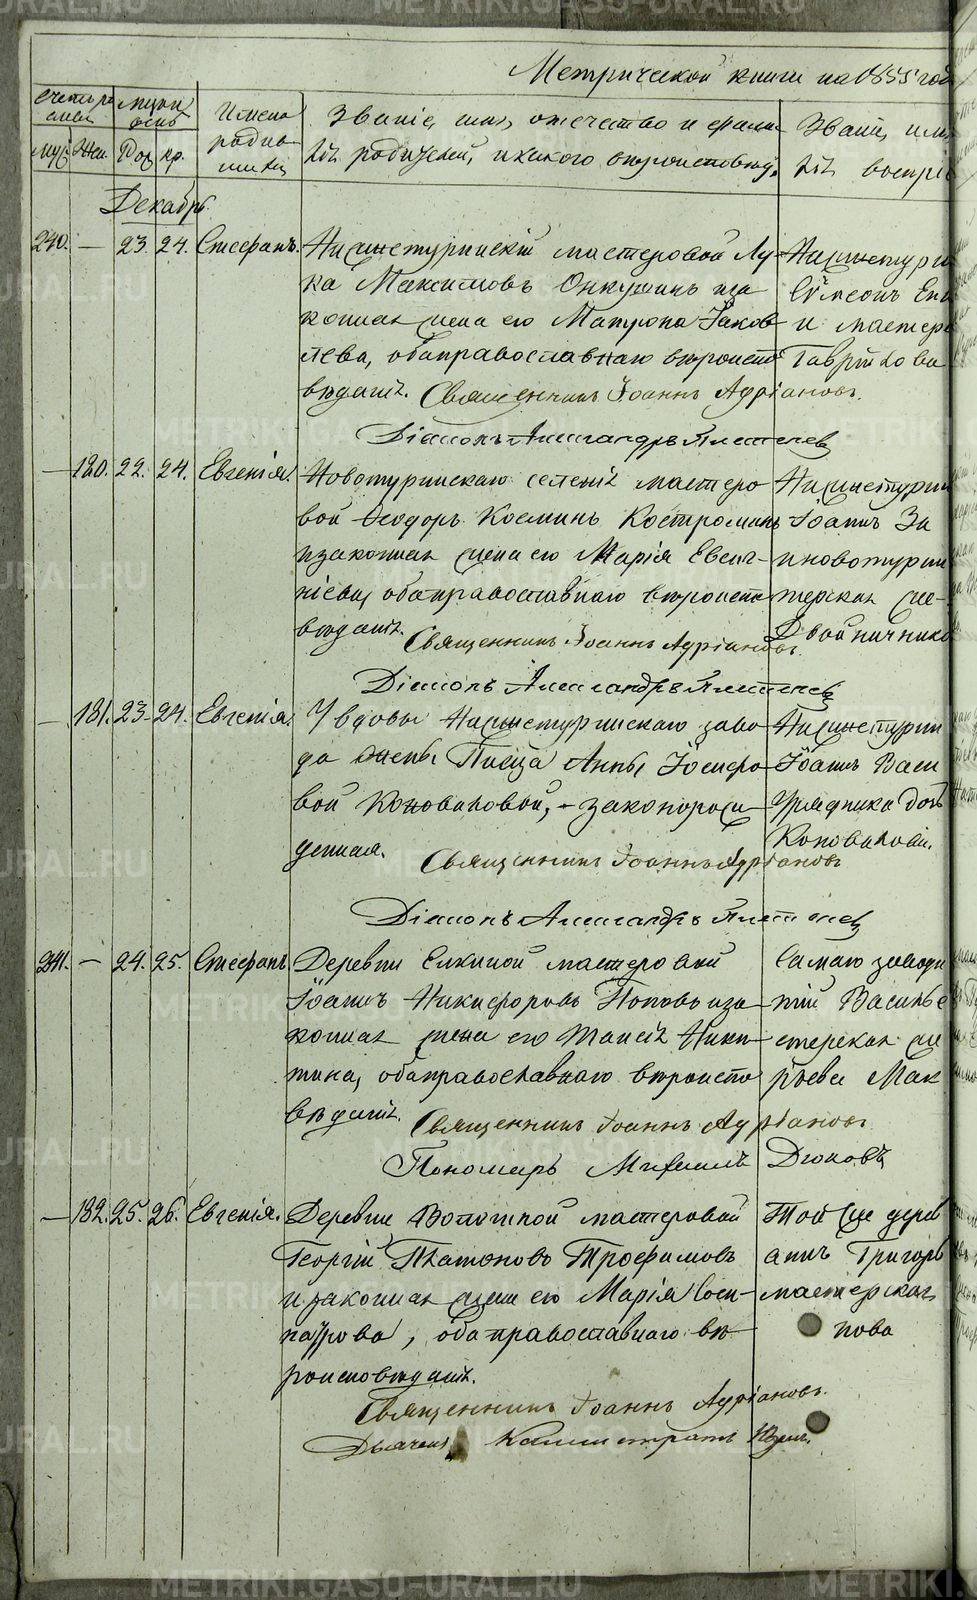 Метрической книги на 1855 год
Счетъ родившихся
Мѣсяцъ и день
Имена родившихся
Званіе, имя, отчество и фамилія родителей, и какого вѣроисповѣд.
Званіе, имя,
воспріе
Муж. Жен. Рож. кр.
Декабрь
240. — 23. 24. Стефанъ.
Нижнетуринскій мастеровой Лу-
ка Максимовъ Онкушинъ и за
конная жена его Матрона Іаков
лева, оба православнаго вѣроиспо
вѣданія. Священникъ Іоаннъ Адріановъ.
Діаконъ Александръ
Нижнетурин
Сѵмеонъ
и мастеро
Гаврилова
— 180. 22. 24. Евгенія.
Новотуринскаго селенія мастеро
вой Ѳеодоръ Косминъ Костроминъ
и законная жена его Марія Евген-
ніева, оба православнаго вѣроиспо
вѣданія. Священникъ Іоаннъ Адріановъ.
Діаконъ Александръ
Нижнетурин
Іоаннъ
и новотурин
терская же-
Двойничнико
— 181. 23. 24. Евгенія.
У вдовы Нижнетуринскаго заво
да жены Писца Анны Іосифо
вой Коноваловой, — законорож
денная. Священникъ Іоаннъ Адріановъ
Діаконъ Александръ
Нижнетурин
Іоаннъ Васи
Урядника дочь
Коновалова.
241. — 24. 25. Стефанъ
Деревни Елкиной мастеровой
Іоаннъ Никифоровъ Поповъ и за
конная жена его Таисія Ники-
тина, оба православнаго вѣроиспо
вѣданія. Священникъ Іоаннъ Адріановъ
Пономарь Михаилъ Дюковъ
Самаго завода
Василье
стерская же
рьева Мак
— 182. 25. 26. Евгенія.
Деревни Волокиной мастеровой
Георгій Платоновъ Трофимовъ
и законная жена его Марія Сос-
патрова, оба православнаго вѣ-
роисповѣданія.
Священникъ Іоаннъ Адріановъ.
Дьячекъ Каллистратъ
Той же дерев
Григорь
мастерская
нова
METRIKI.GASO-URAL.RU